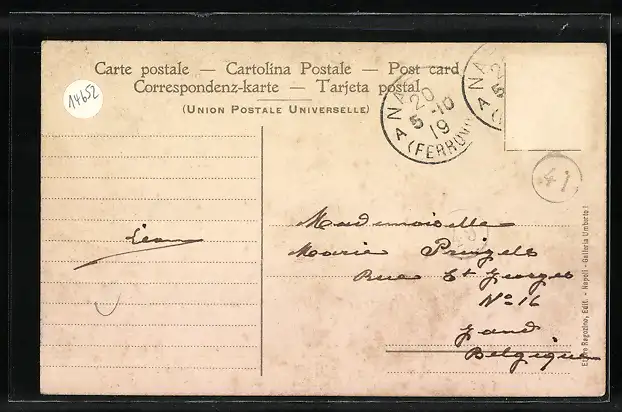 Carte postale — Cartolina Postale — Post card
Correspondenz-karte — Tarjeta postal
(UNION POSTALE UNIVERSELLE)
14652
20
5-10
19
(FERROVIA)
41
Léon
Mademoiselle
Marie Pringels
Rue St Georges
No 16
Gand
Belgique
Ettore Ragozino, Edit. - Napoli - Galleria Umberto I